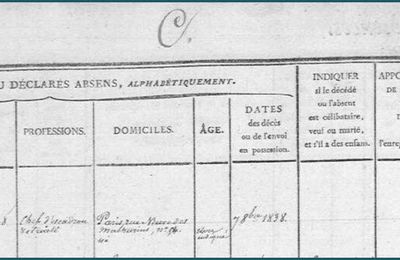 C.
U DÉCLARÉS ABSENS, ALPHABÉTIQUEMENT.
PROFESSIONS.
DOMICILES.
ÂGE.
DATES
des décès
ou de l'envoi
en possession.
INDIQUER
si le décédé
ou l'absent
est célibataire,
veuf ou marié,
et s'il a des enfans.
APPO
DE
D
l'enre
8
Chef d'escadron
Paris, rue Neuve des
Mathurins, n°
non
indiqué
7 9bre 1838.